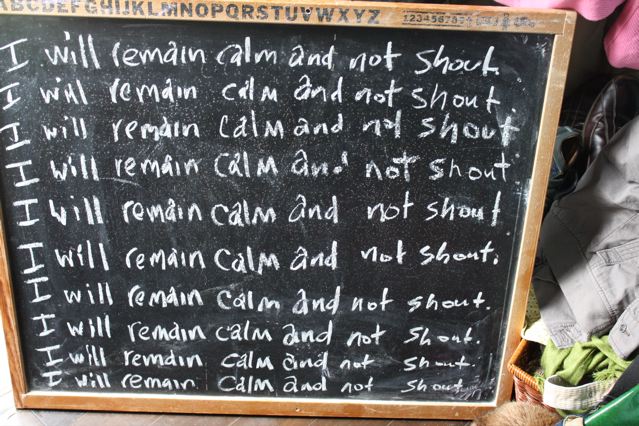 ABCDEFGHIJKLMNOPQRSTUVWXYZ
I will remain calm and not shout.
I will remain calm and not shout.
I will remain calm and not shout
I will remain calm and not shout
I will remain calm and not shout
I will remain calm and not shout.
I will remain calm and not shout.
I will remain calm and not shout.
I will remain calm and not shout.
I will remain calm and not shout.